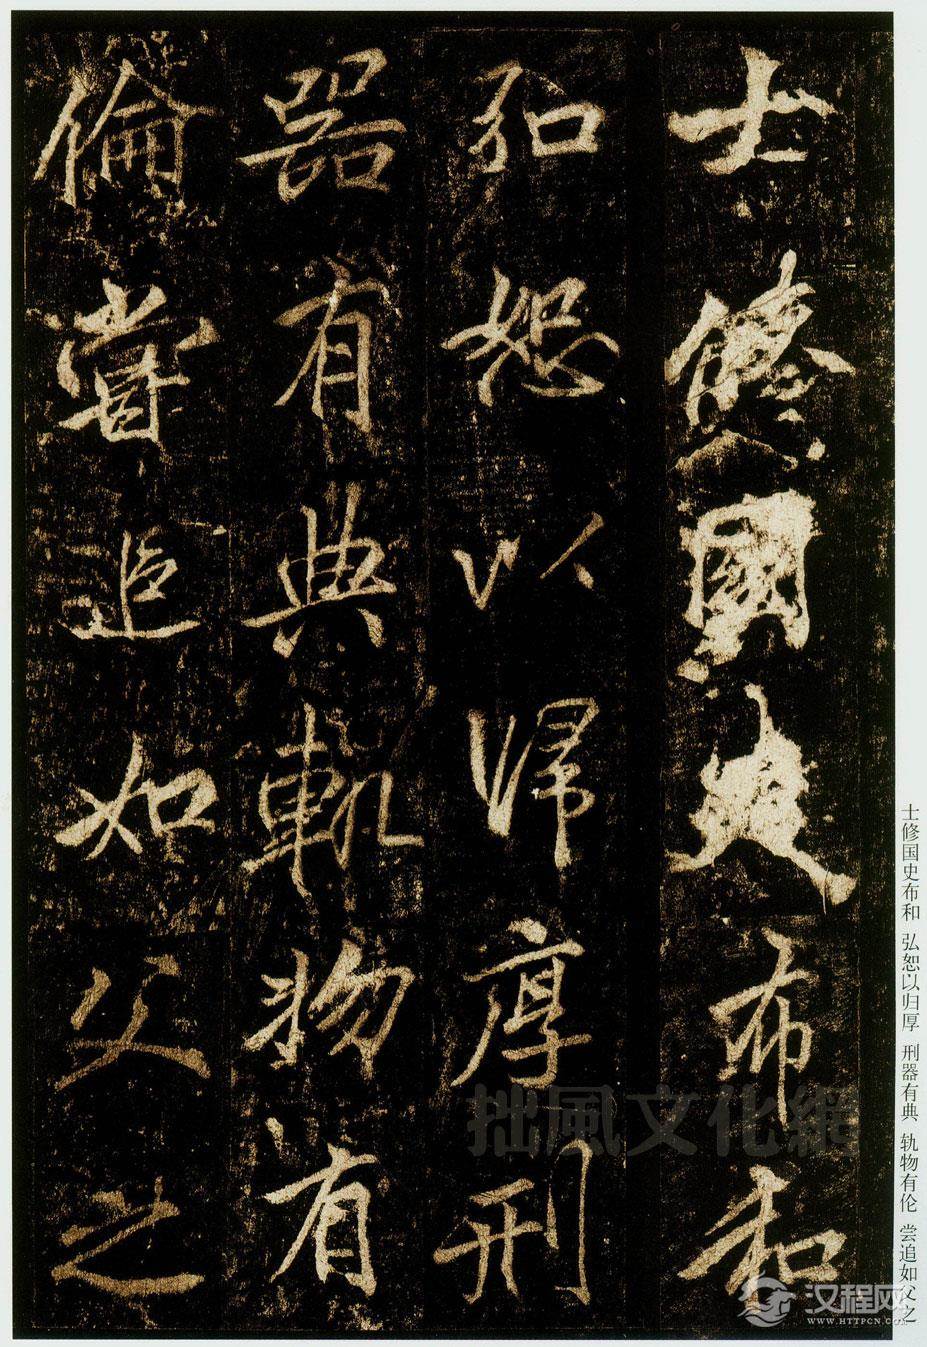 士修國史布和
弘恕以歸厚刑
器有典軌物有
倫嘗追如父之
士修国史布和 弘恕以归厚 刑器有典 轨物有伦 尝追如父之
拙風文化網
汉程网
WWW.HTTPCN.COM